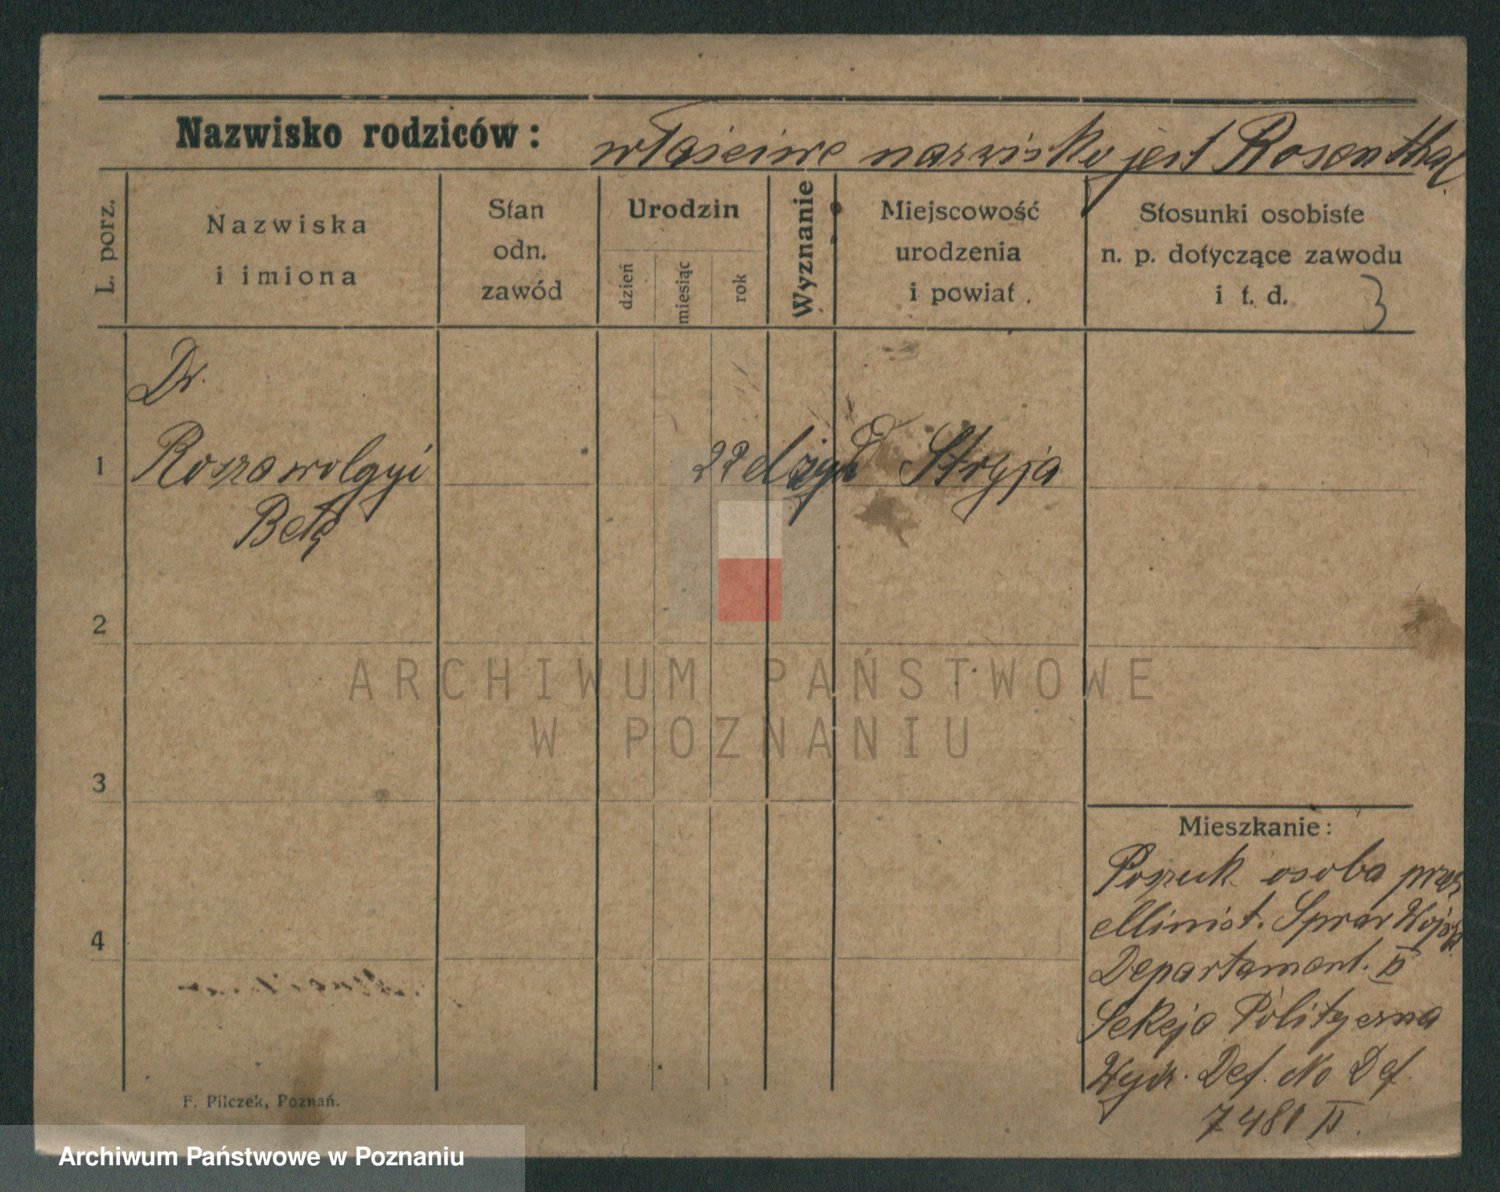 Nazwisko rodziców: właściwe nazwisko jest Rosenthal
L. porz.
Nazwiska
i imiona
Stan
odn.
zawód
Urodzin
dzień
miesiąc
rok
Wyznanie
Miejscowość
urodzenia
i powiat.
Stosunki osobiste
n. p. dotyczące zawodu
i t. d.
3
Dr.
1 Roszawolgyi 22 Stryja
2
ARCHIWUM PAŃSTWOWE
W POZNANIU
3
Mieszkanie:
Poszuk. osoba przez
Minist. Spraw Wojsk.
4
Departament. II
Sekcja Polityczna
Wydz. Def. No Def.
7481 II.
F. Pilczek, Poznań.
Archiwum Państwowe w Poznaniu